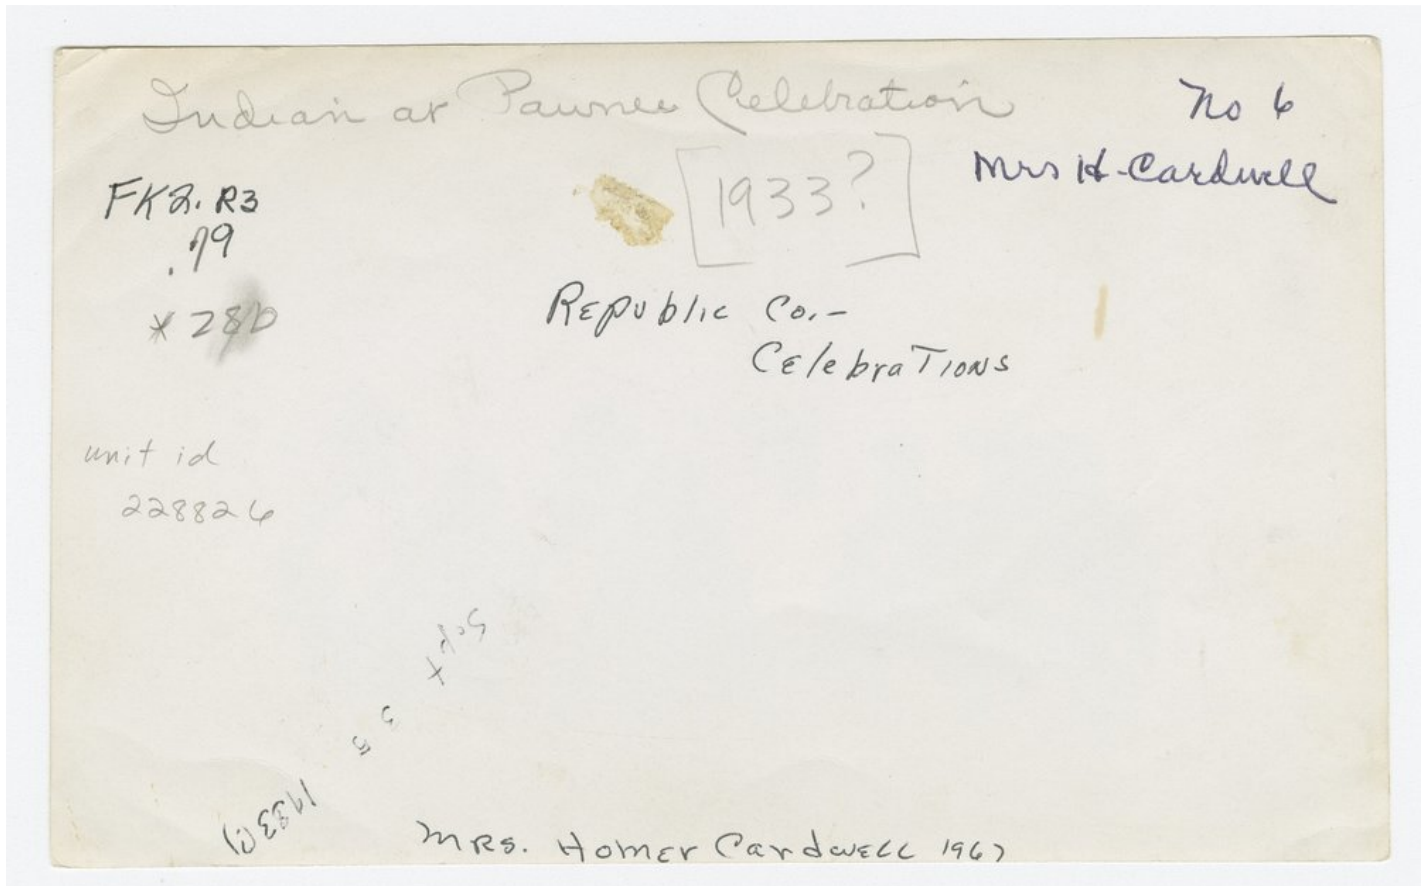 Indian at Pawnee Celebration
No 6
Mrs H-Cardwell
[1933?]
FK2. R3
.79
*28b
Republic Co.-
Celebrations
unit id
228826
Sept
3 5
Mrs. Homer Cardwell 1967